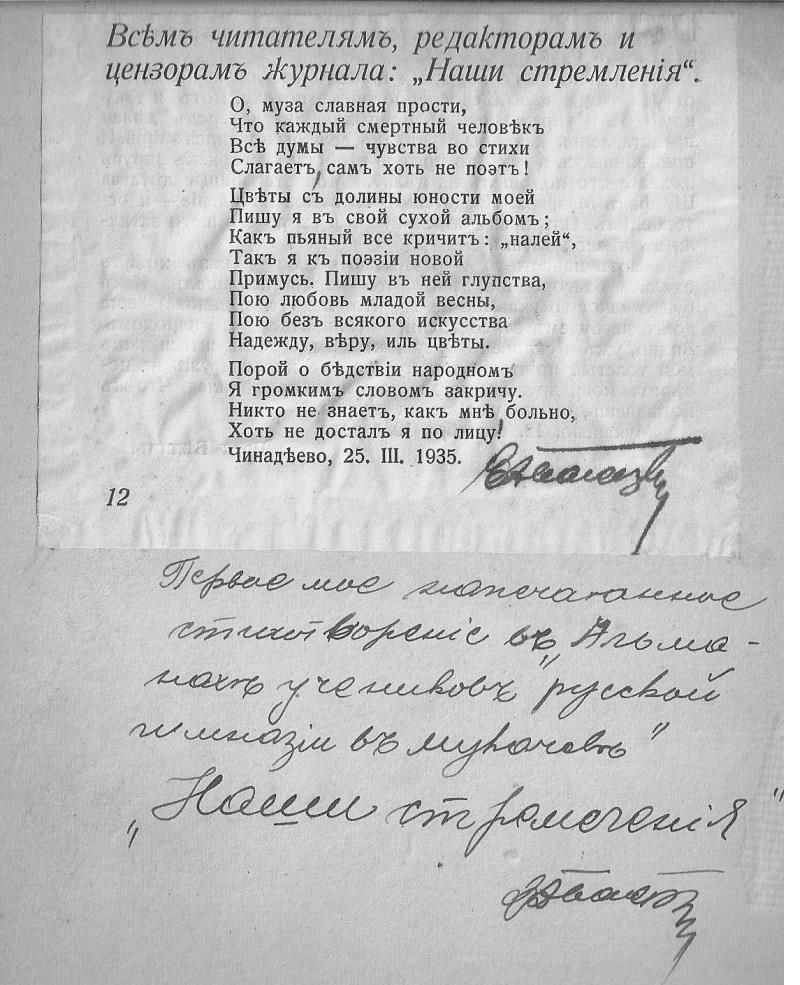 Всѣмъ читателямъ, редакторамъ и
цензорамъ журнала: „Наши стремленія“.
О, муза славная прости,
Что каждый смертный человѣкъ
Всѣ думы — чувства во стихи
Слагаетъ, самъ хоть не поэтъ!
Цвѣты съ долины юности моей
Пишу я въ свой сухой альбомъ;
Какъ пьяный все кричитъ: „налей“,
Такъ я къ поэзіи новой
Примусь. Пишу въ ней глупства,
Пою любовь младой весны,
Пою безъ всякого искусства
Надежду, вѣру, иль цвѣты.
Порой о бѣдствіи народномъ
Я громкимъ словомъ закричу.
Никто не знаетъ, какъ мнѣ больно,
Хоть не досталъ я по лицу!
Чинадѣево, 25. III. 1935.
12
Первое мое напечатанное
стихотвореніе въ „Альма-
нахъ учениковъ русской
гимназіи въ Мукачевѣ"
„Наши стремленія"